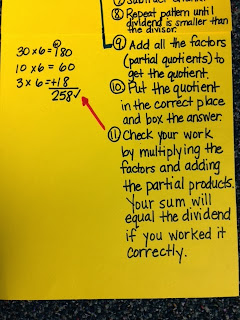 ⑧ Repeat pattern until
dividend is smaller than
the divisor.
⑨ Add all the factors
(partial quotients) to
get the quotient.
⑩ Put the quotient
in the correct place
and box the answer.
⑪ Check your work
by multiplying the
factors and adding
the partial products.
Your sum will
equal the dividend
if you worked it
correctly.
1
30 x 6 = 180
10 x 6 = 60
3 x 6 = +18
258✓